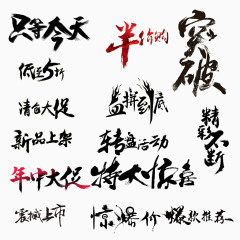 只等今天
半价购
突破
低至5折
清仓大促
盖拼到底
精彩不断
新品上架
转盘活动
年中大促
特大惊喜
震撼上市
惊爆价
爆款推荐